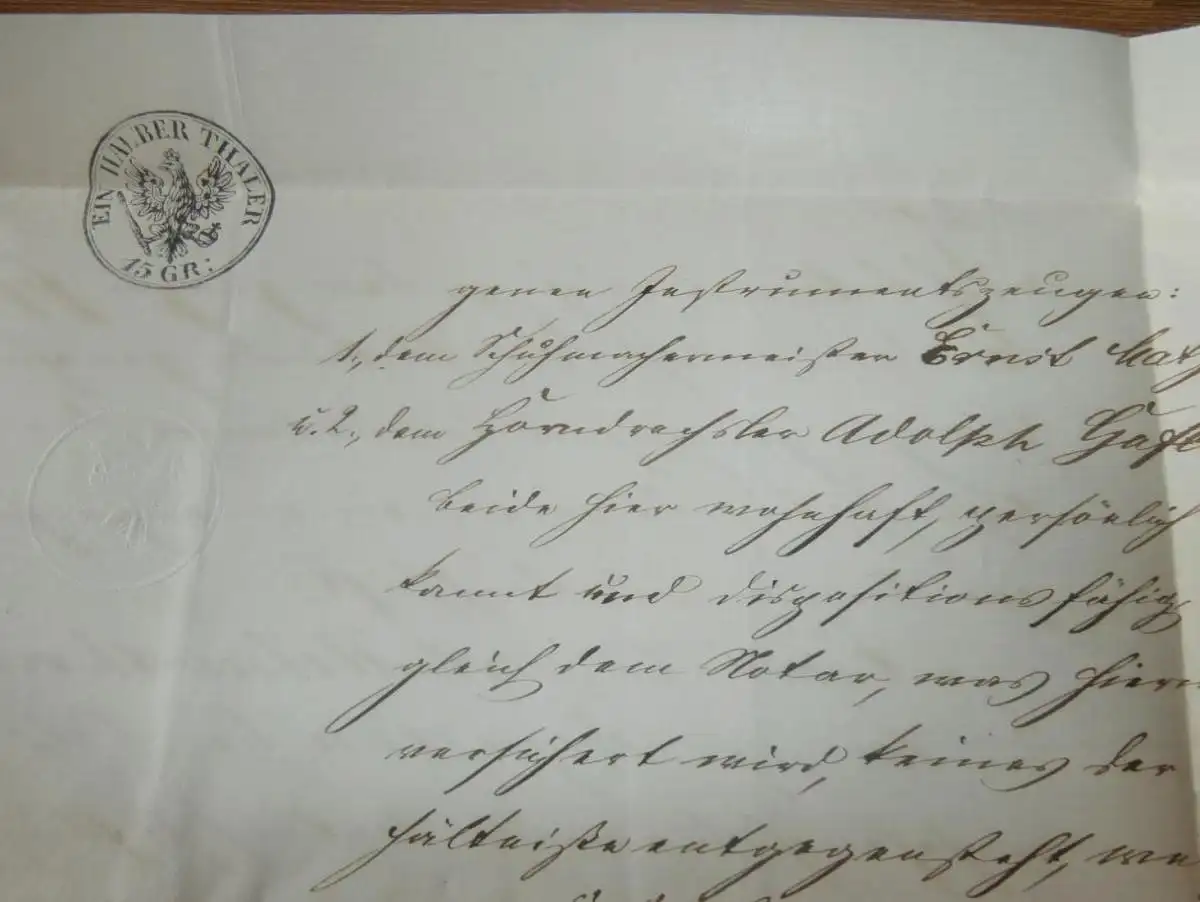 EIN HALBER THALER
15 GR:
genen Instrumentszeugen:
1., dem Schuhmachermeister Ernst
u. 2., dem Horndrechsler Adolph
beide hier wohnhaft, persönlich
kannt und dispositionsfähig
gleich dem Notar, was hierm
versichert wird, keines der
hältniße entgegensteht, we